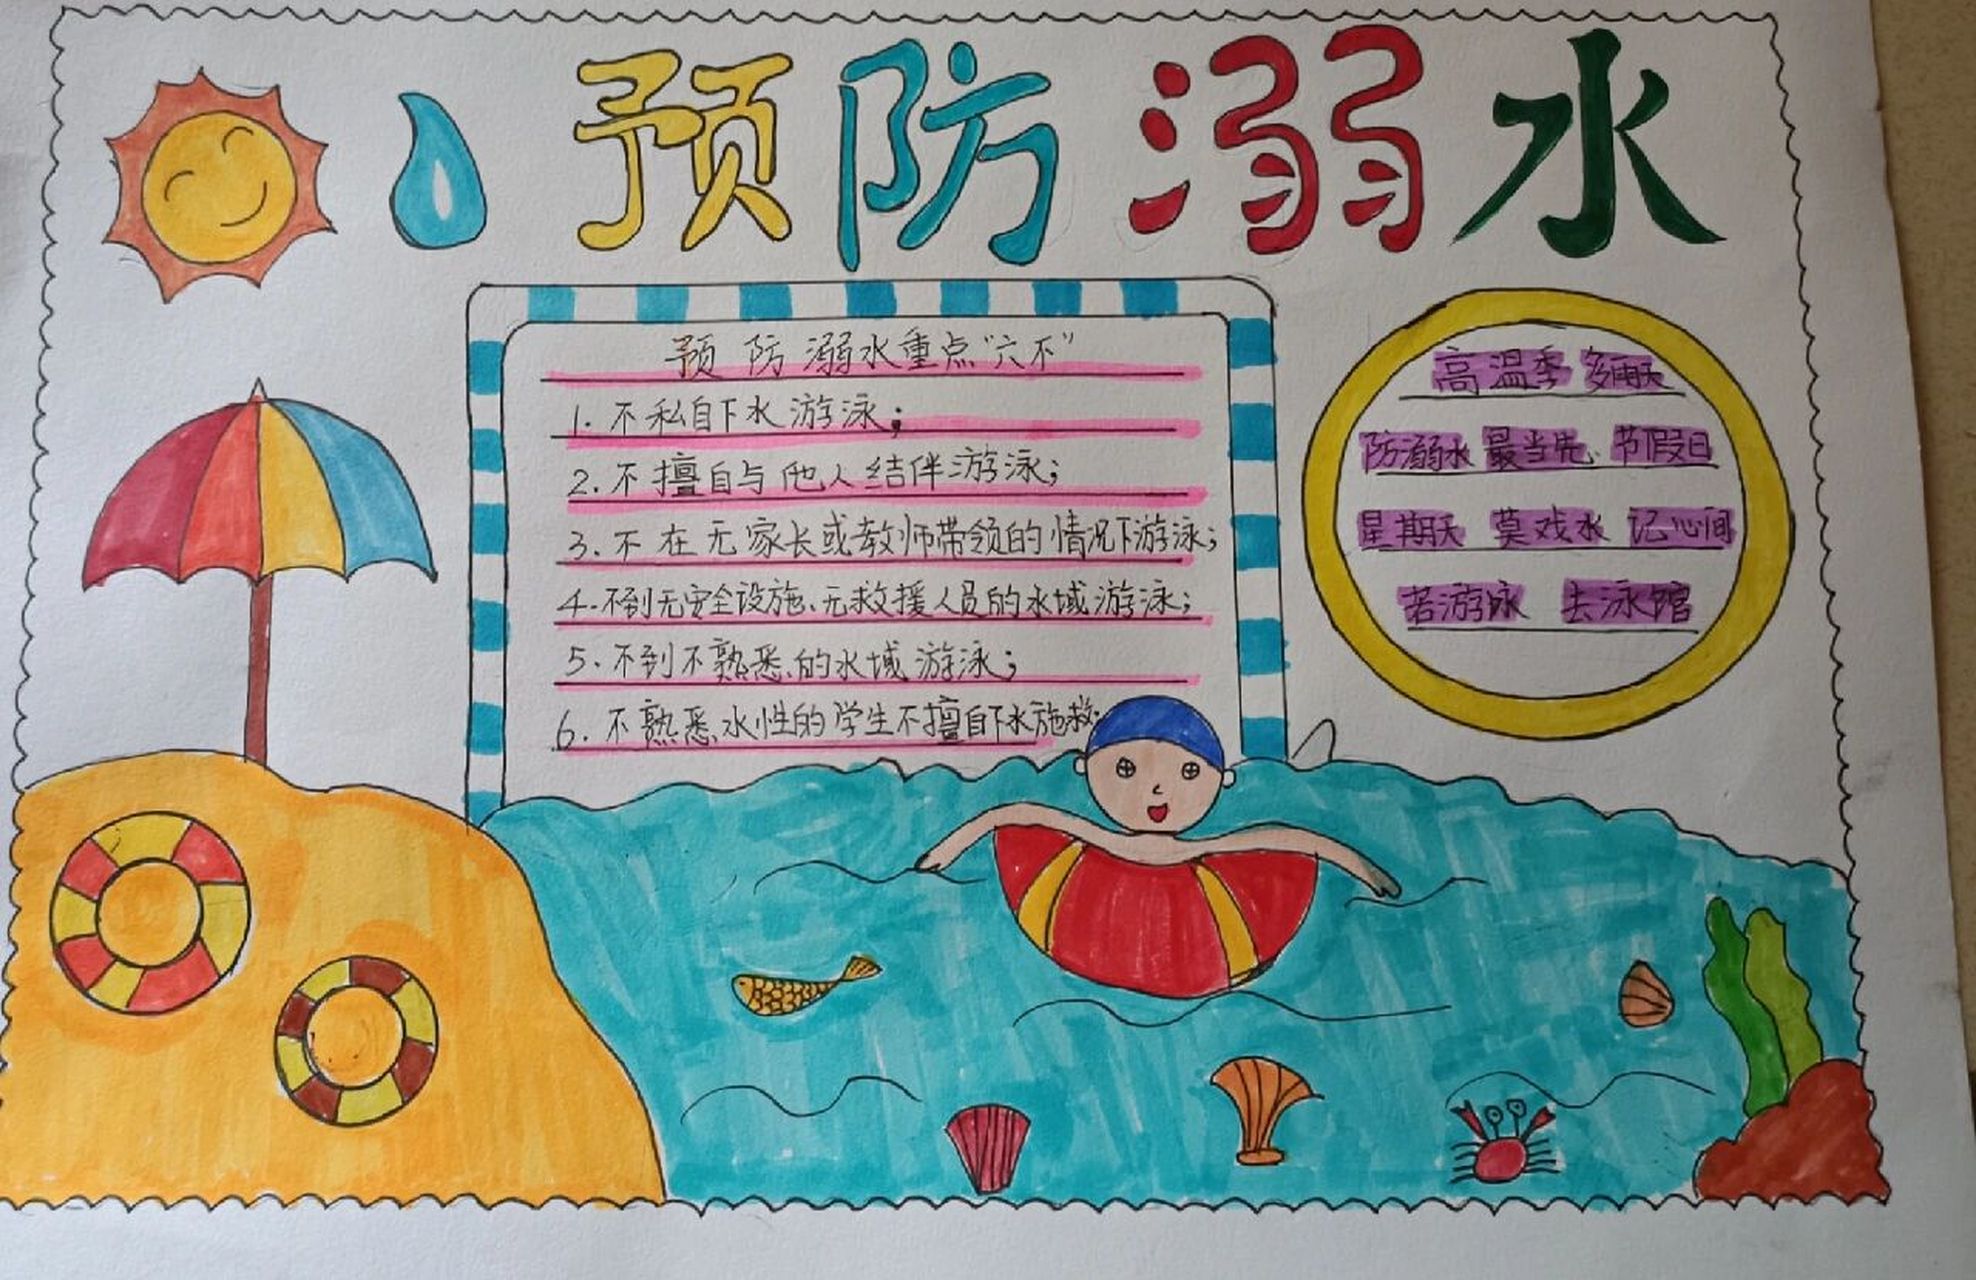 预防溺水
预防溺水重点“六不”
1.不私自下水游泳；
2.不擅自与他人结伴游泳；
3.不在无家长或教师带领的情况下游泳；
4.不到无安全设施、无救援人员的水域游泳；
5.不到不熟悉的水域游泳；
6.不熟悉水性的学生不擅自下水施救
高温季 多雨天
防溺水 最当先 节假日
星期天 莫戏水 记心间
若游泳 去泳馆